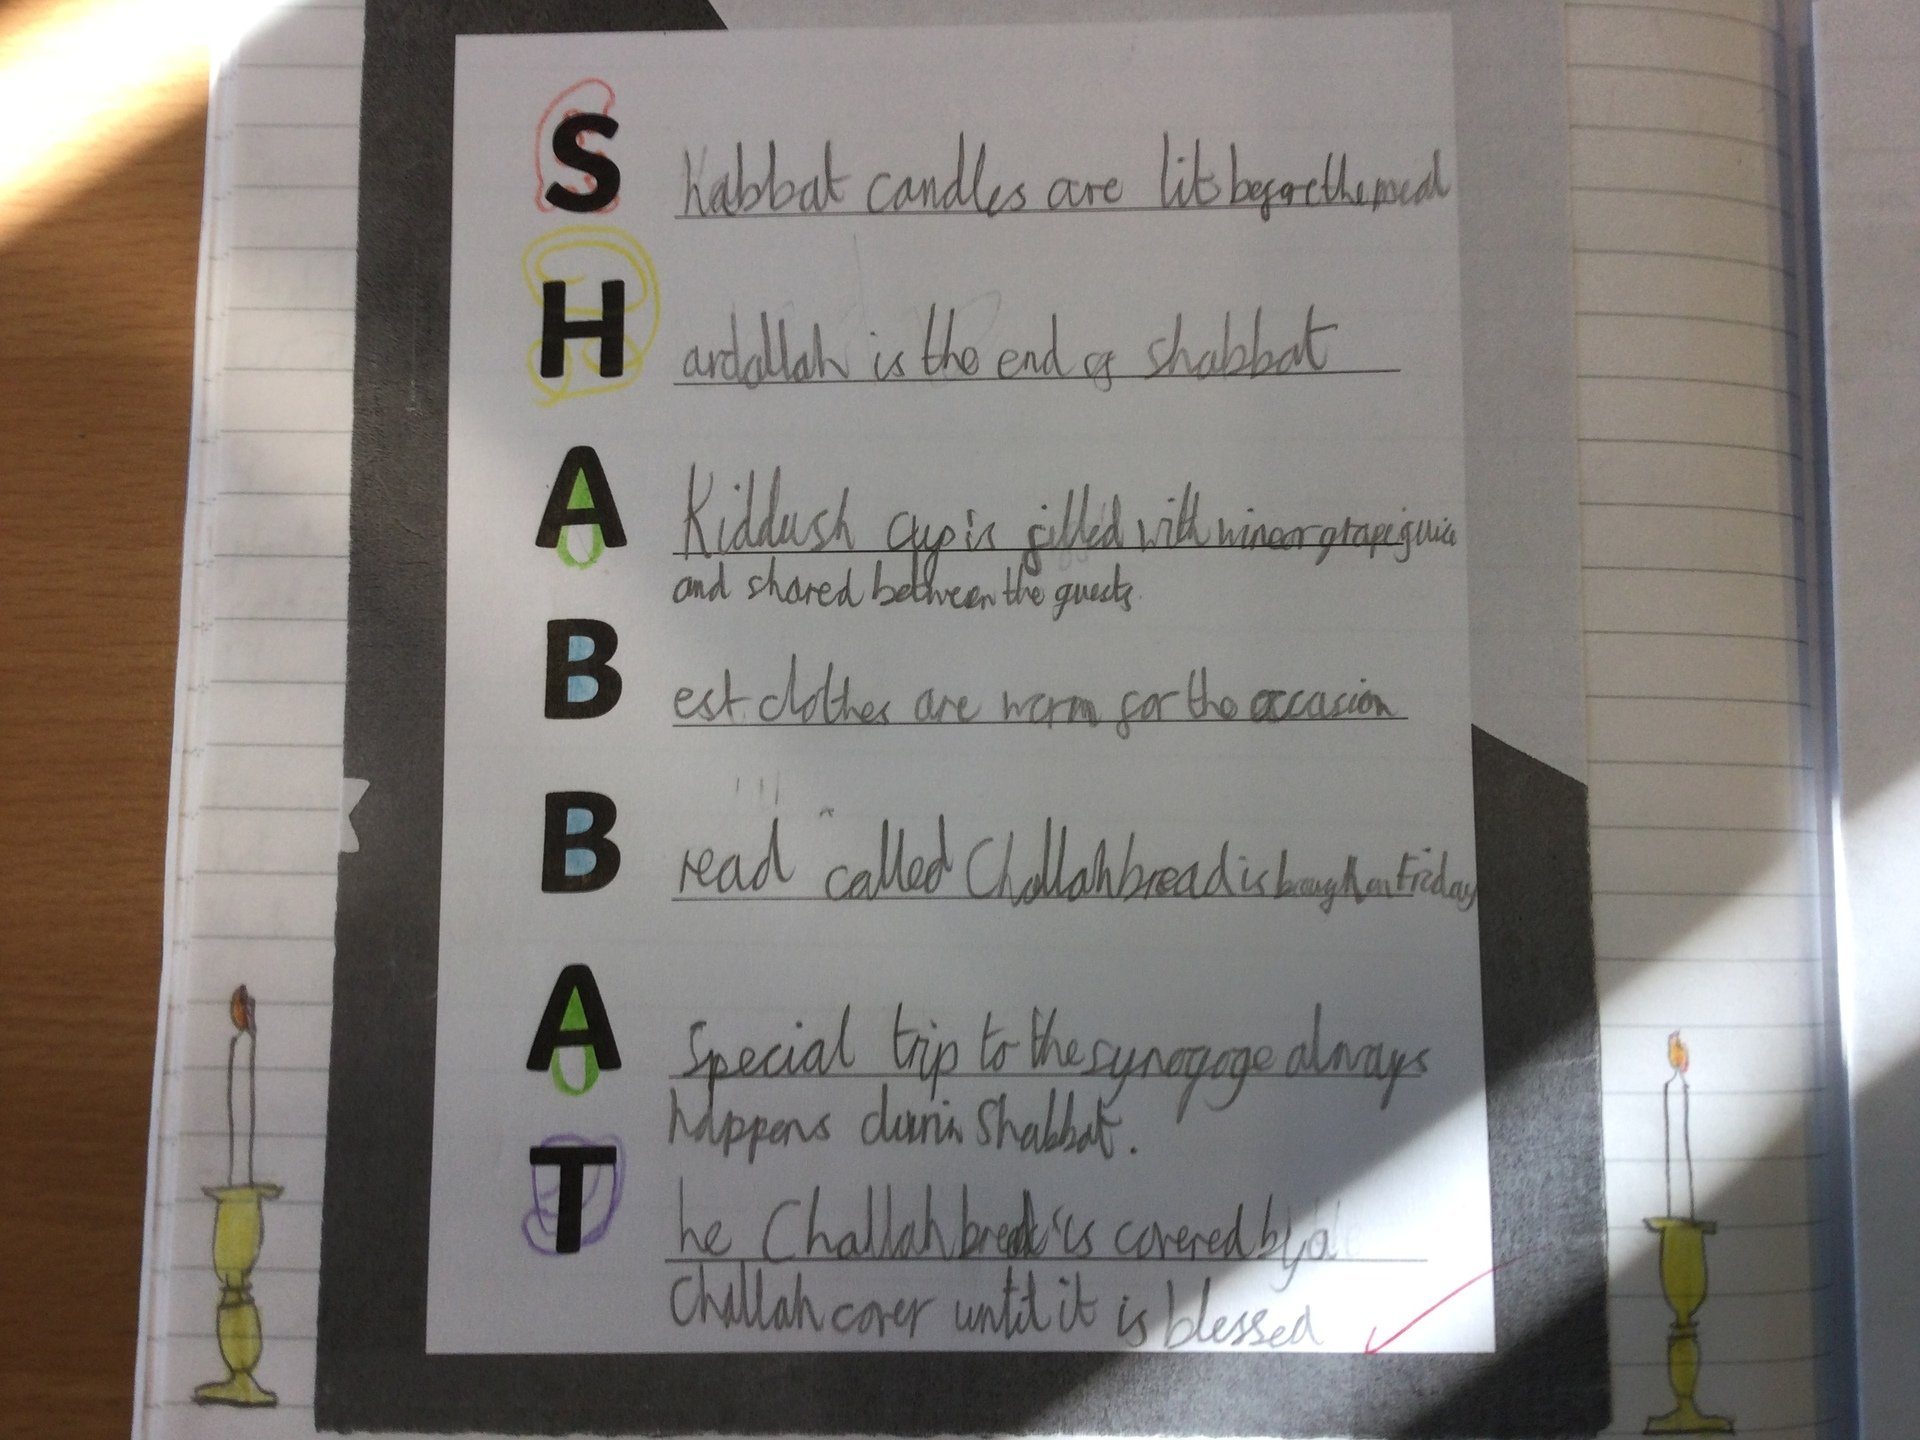 S habbat candles are lits before the meal
H ardallah is the end of shabbat
A Kiddush cup is filled with wine or grape juice
and shared between the guests.
B est clothes are worm for the occasion
B read called Challah bread is on Friday
A Special trip to the synogoge always
happens durin Shabbat.
T he Challah bread is covered by a
Challah cover until it is blessed